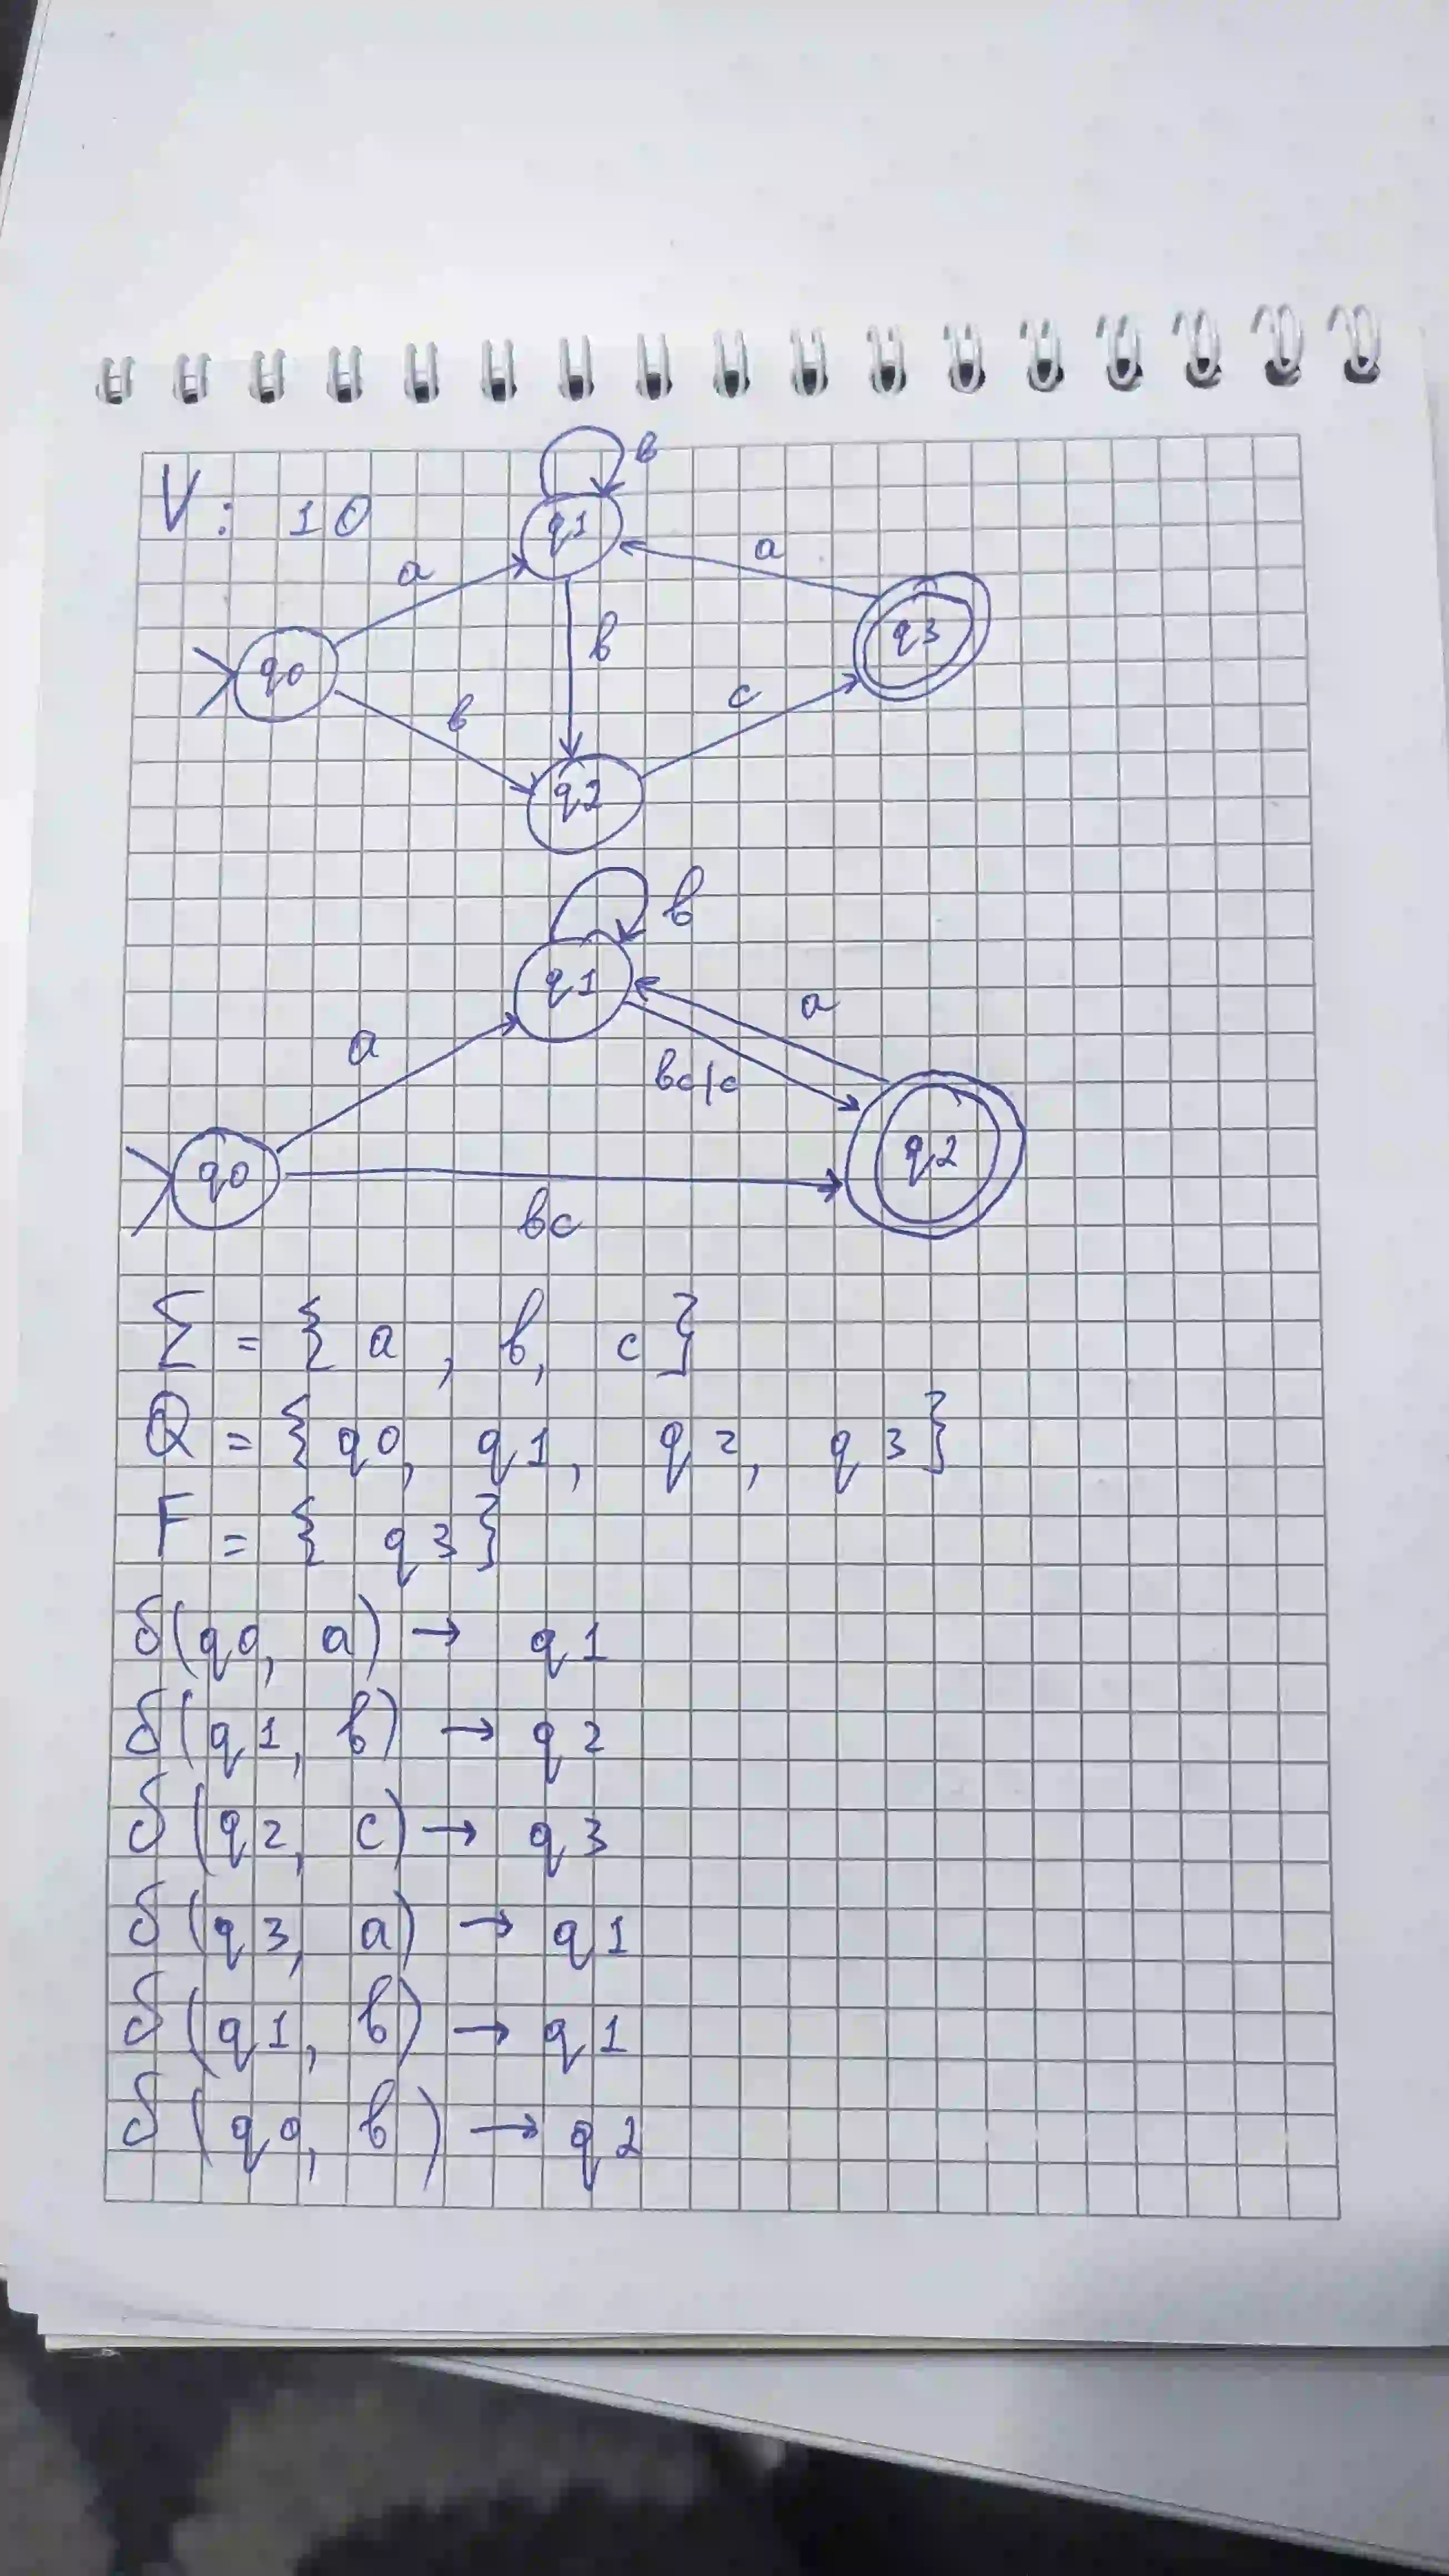 V: 10
b
q1
a
a
q3
q0
b
b
c
q2
b
q1
a
a
bc|c
q2
q0
bc
Σ = { a , b, c }
Q = { q0, q1, q2, q3 }
F = { q3 }
δ(q0, a) → q1
δ(q1, b) → q2
δ(q2, c) → q3
δ(q3, a) → q1
δ(q1, b) → q1
δ(q0, b) → q2